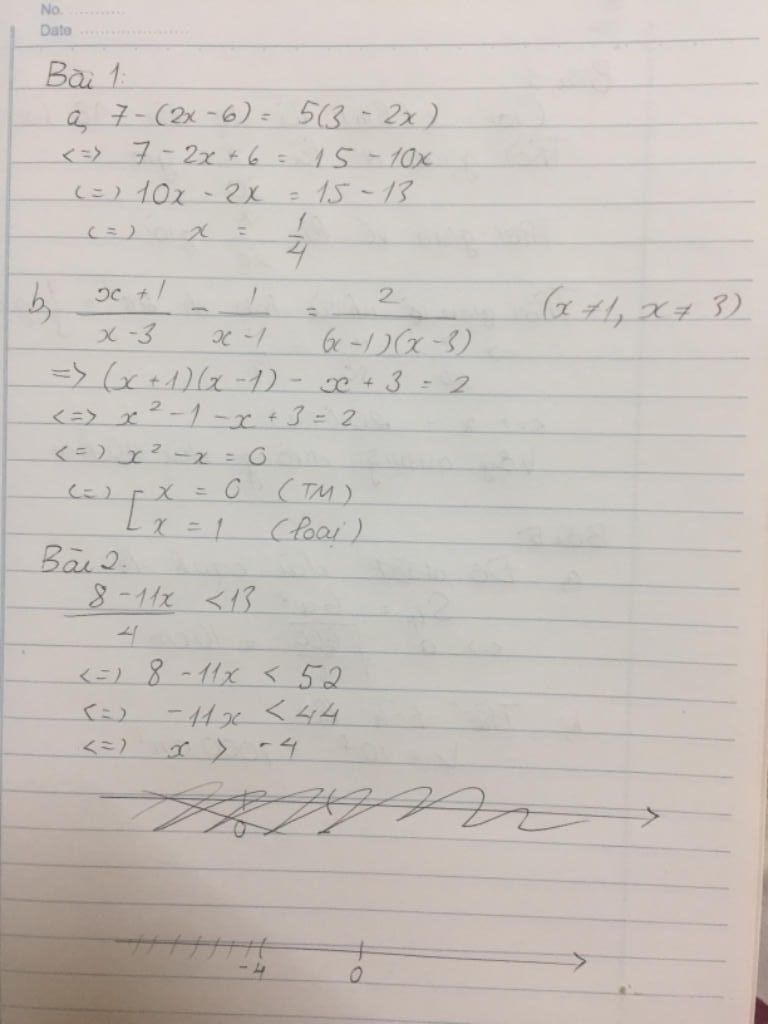 No. ............
Date .....................
Bài 1:
a, 7 - (2x - 6) = 5(3 - 2x)
<=> 7 - 2x + 6 = 15 - 10x
<=> 10x - 2x = 15 - 13
<=> x = 1/4
b, (x + 1)/(x - 3) - 1/(x - 1) = 2/((x - 1)(x - 3)) (x ≠ 1, x ≠ 3)
=> (x + 1)(x - 1) - x + 3 = 2
<=> x² - 1 - x + 3 = 2
<=> x² - x = 0
<=> [ x = 0 (TM)
x = 1 (loại)
Bài 2.
(8 - 11x)/4 < 13
<=> 8 - 11x < 52
<=> -11x < 44
<=> x > -4
0
-4 0